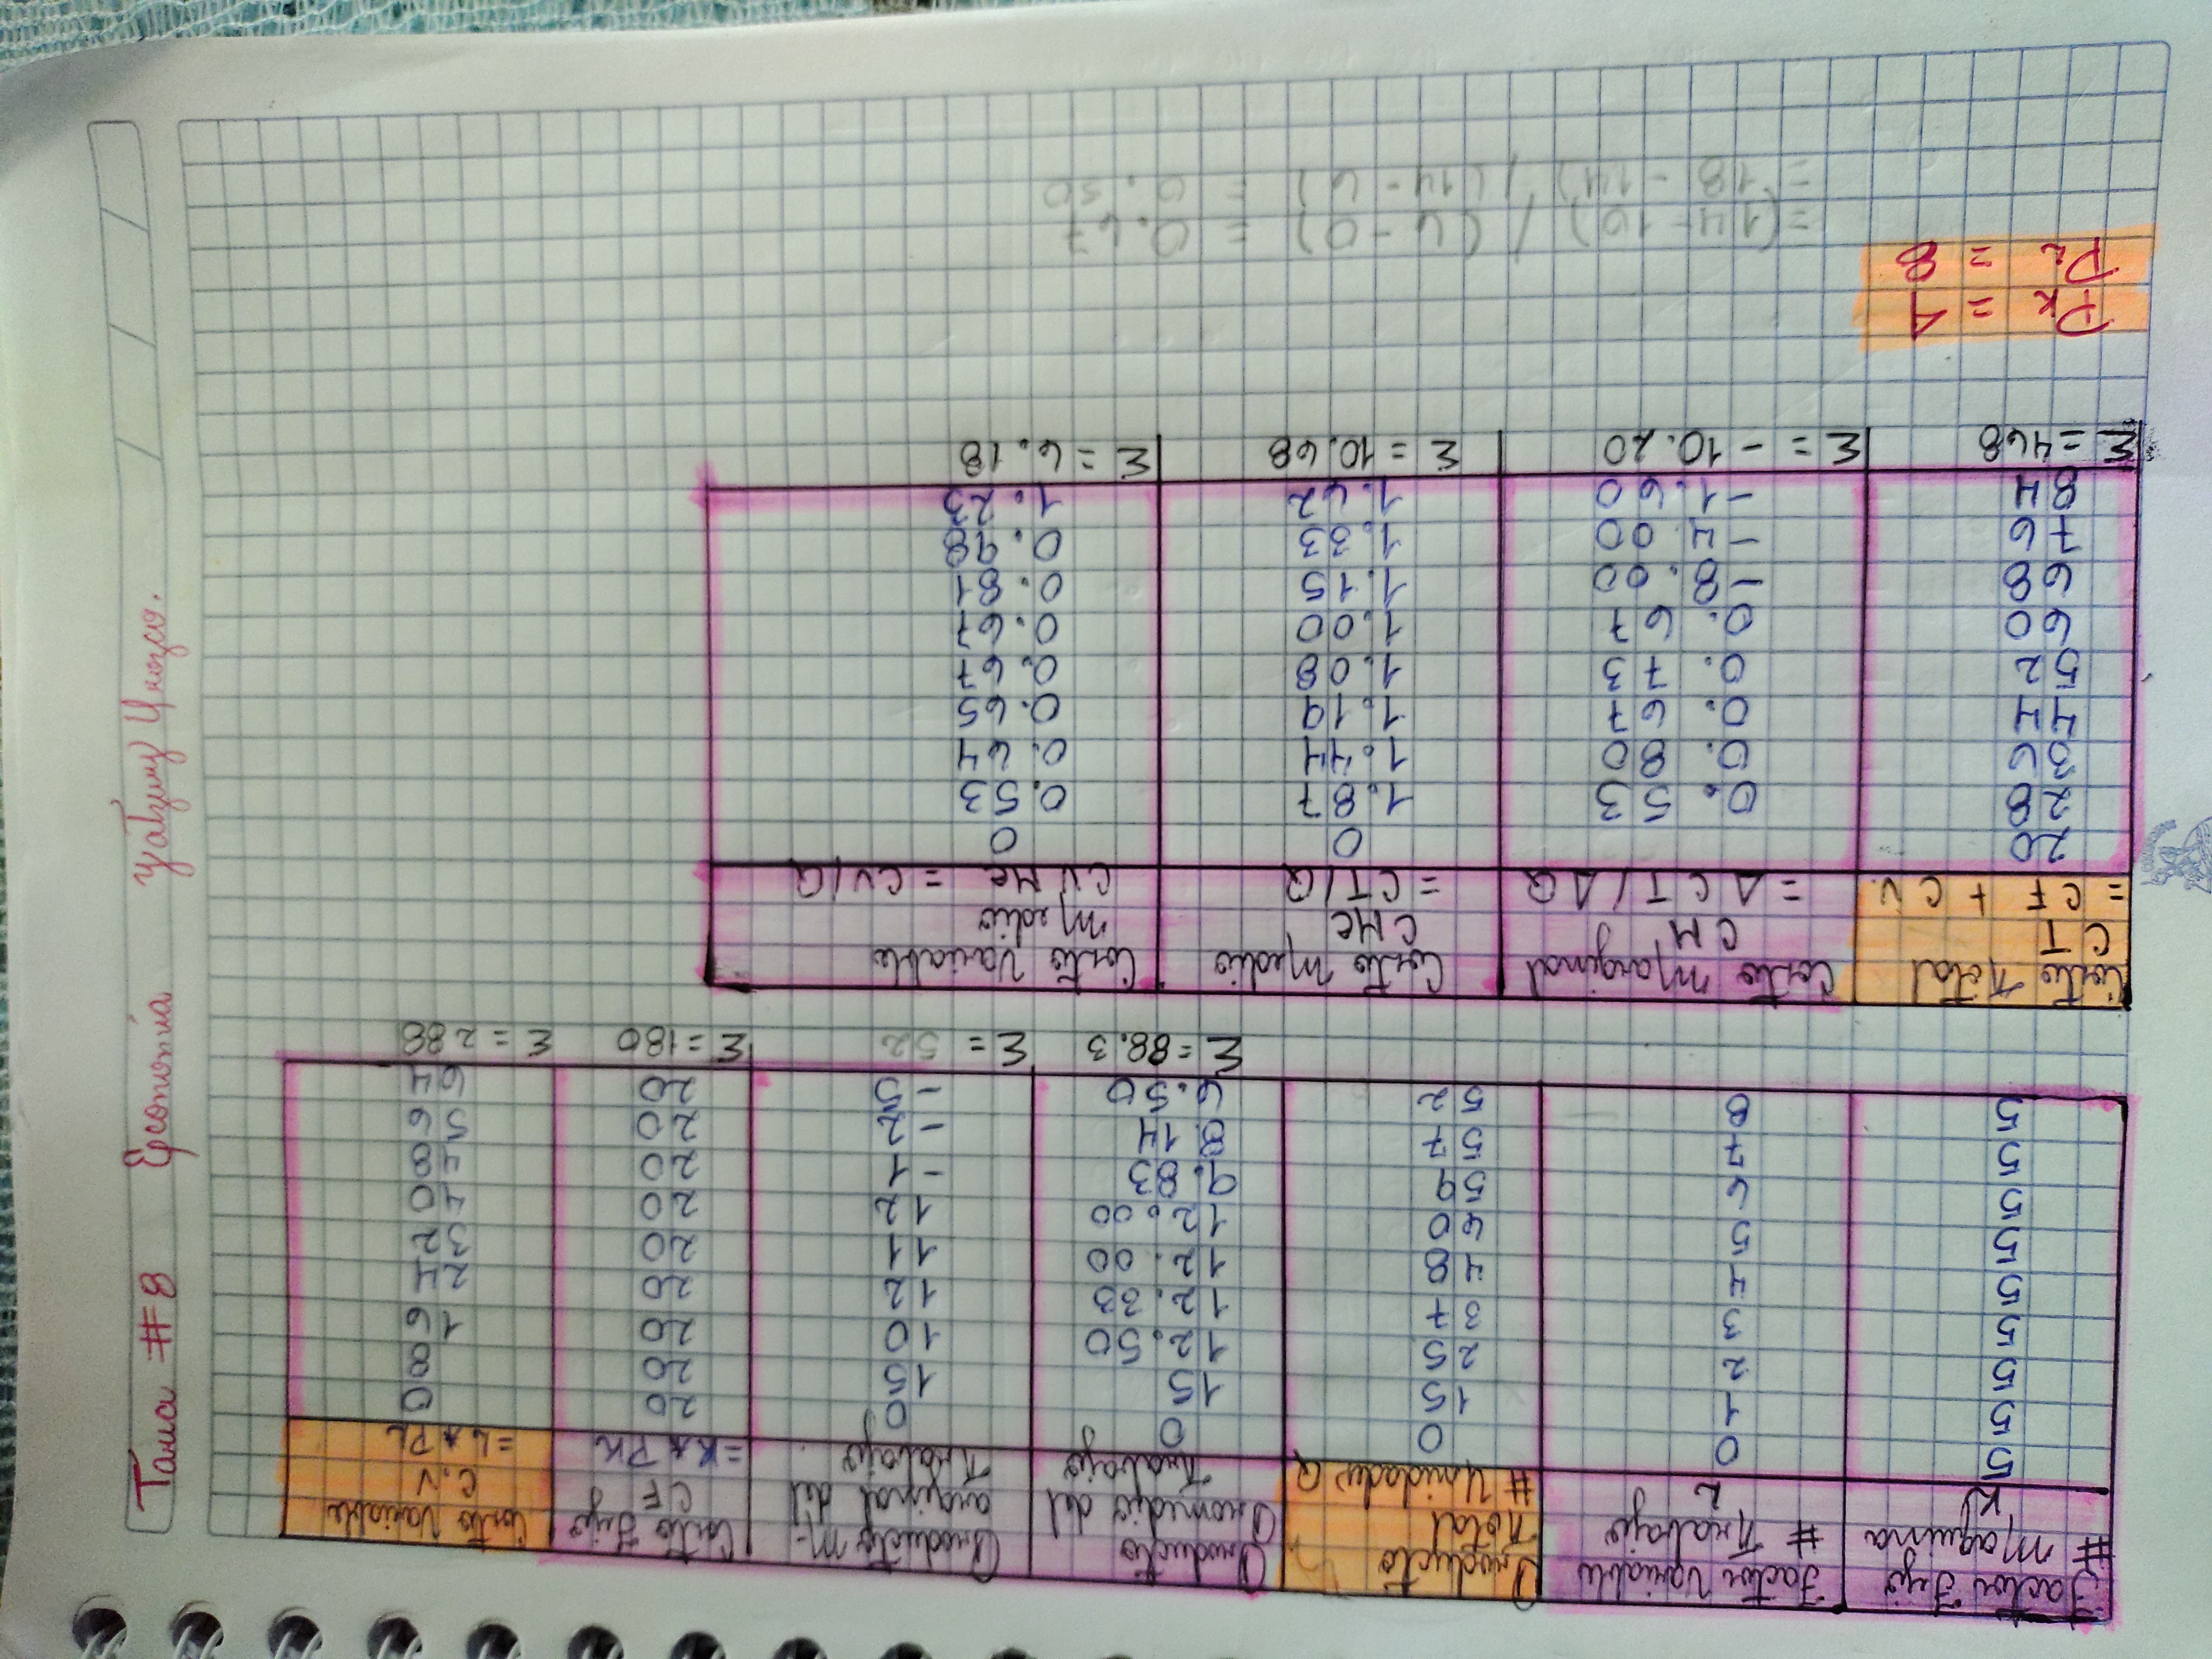 Tarea #8 Economía
Factor Fijo Factor Variable Producto Producto Producto M- Costo Fijo Costo Variable
# Maquina # Trabajo Total Promedio del arginal del CF C.V
K L # Unidades Q Trabajo Trabajo =K*PK =L*PL
5 0 0 0 0 20 0
5 1 15 15 15 20 8
5 2 25 12.50 10 20 16
5 3 37 12.33 12 20 24
5 4 48 12.00 11 20 32
5 5 60 12.00 12 20 40
5 6 59 9.83 -1 20 48
5 7 57 8.14 -2 20 56
5 8 52 6.50 -5 20 64
Σ=88.3 Σ= 52 Σ=180 Σ=288
Costo Total Costo Marginal Costo Medio Costo Variable
CT CM CMe Medio
=CF + C.V. =ΔCT/ΔQ =CT/Q CVMe =CV/Q
20 0 0
28 0.53 1.87 0.53
36 0.80 1.44 0.64
44 0.67 1.19 0.65
52 0.73 1.08 0.67
60 0.67 1.00 0.67
68 -8.00 1.15 0.81
76 -4.00 1.33 0.98
84 -1.60 1.62 1.23
Σ=468 Σ= -10.20 Σ=10.68 Σ=6.18
PK = 4
PL = 8
=(14-10) / (6-0) = 0.67
= 18-14) / (14-6) = 0.50